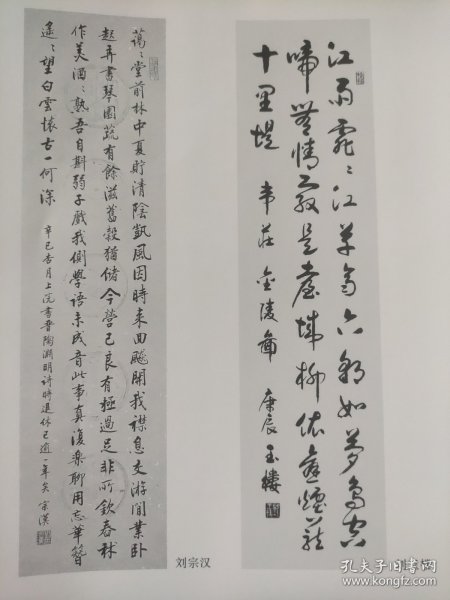 江雨霏〻江草齊六朝如夢鳥空
啼無情最是臺城柳依舊煙籠
十里堤 韋莊 金陵圖 庚辰 玉樓
藹〻堂前林中夏貯清陰凱風因時來回飈開我襟息交游閒業卧
起弄書琴園蔬有餘滋舊穀猶儲今營己良有極過足非所欽舂秫
作美酒〻熟吾自斟弱子戲我側學語未成音此事真復樂聊用忘華簪
遙〻望白雲懷古一何深 辛巳杏月上浣書晉陶淵明詩時退休已逾一年矣 宗漢
刘宗汉
孔夫子旧书网